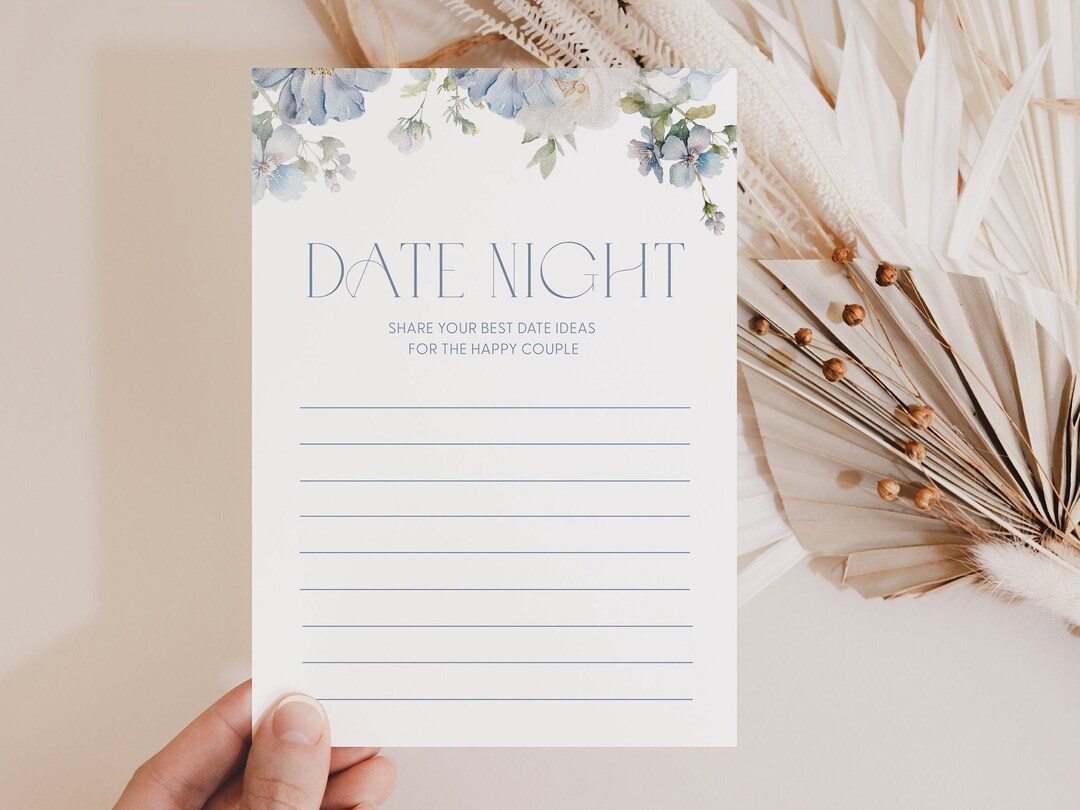 DATE NIGHT
SHARE YOUR BEST DATE IDEAS
FOR THE HAPPY COUPLE